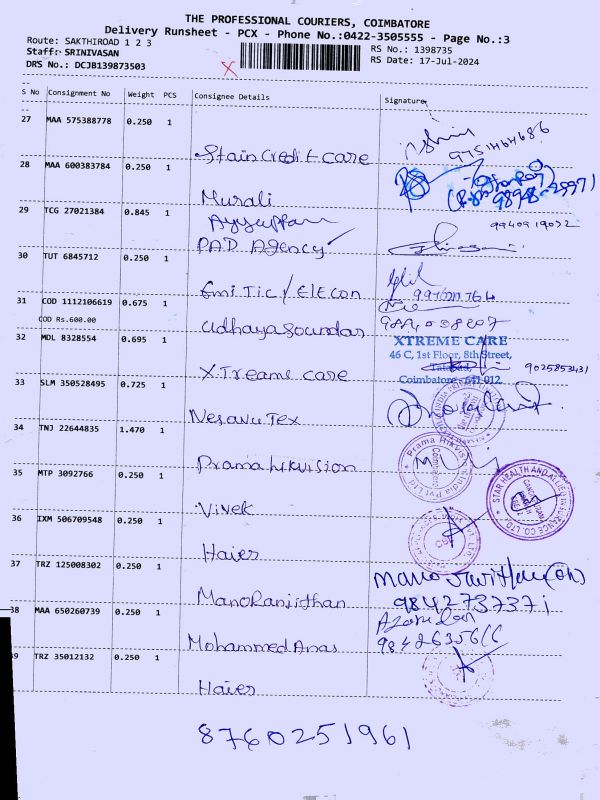 THE PROFESSIONAL COURIERS, COIMBATORE
Delivery Runsheet - PCX - Phone No.:0422-3505555 - Page No.:3
Route: SAKTHIROAD 1 2 3
Staff: SRINIVASAN
DRS No.: DCJB139873503
RS No.: 1398735
RS Date: 17-Jul-2024
S No Consignment No Weight PCS Consignee Details Signature
27 MAA 575388778 0.250 1
Stain Credit care
9751464686
28 MAA 600383784 0.250 1
Murali
29 TCG 27021384 0.845 1
Ayyappan
PAD Agency
9940919032
30 TUT 6845712 0.250 1
Emi Tic / Elecon
31 COD 1112106619 0.675 1
COD Rs.600.00
Udhaya Soundar
32 MDL 8328554 0.695 1
XTREME CARE
46 C, 1st Floor, 8th Street,
Coimbatore - 641 012.
XTreame care
9025853431
33 SLM 350528495 0.725 1
Nesavu Tex
34 TNJ 22644835 1.470 1
Prama hikvision
Prama Hikvision India Pvt Ltd
35 MTP 3092766 0.250 1
Vivek
STAR HEALTH AND ALLIED INSURANCE CO. LTD.
36 IXM 506709548 0.250 1
Haier
37 TRZ 125008302 0.250 1
Mano Ranjithan
9842737371
38 MAA 650260739 0.250 1
Mohammed Anas
39 TRZ 35012132 0.250 1
Haier
8760251961